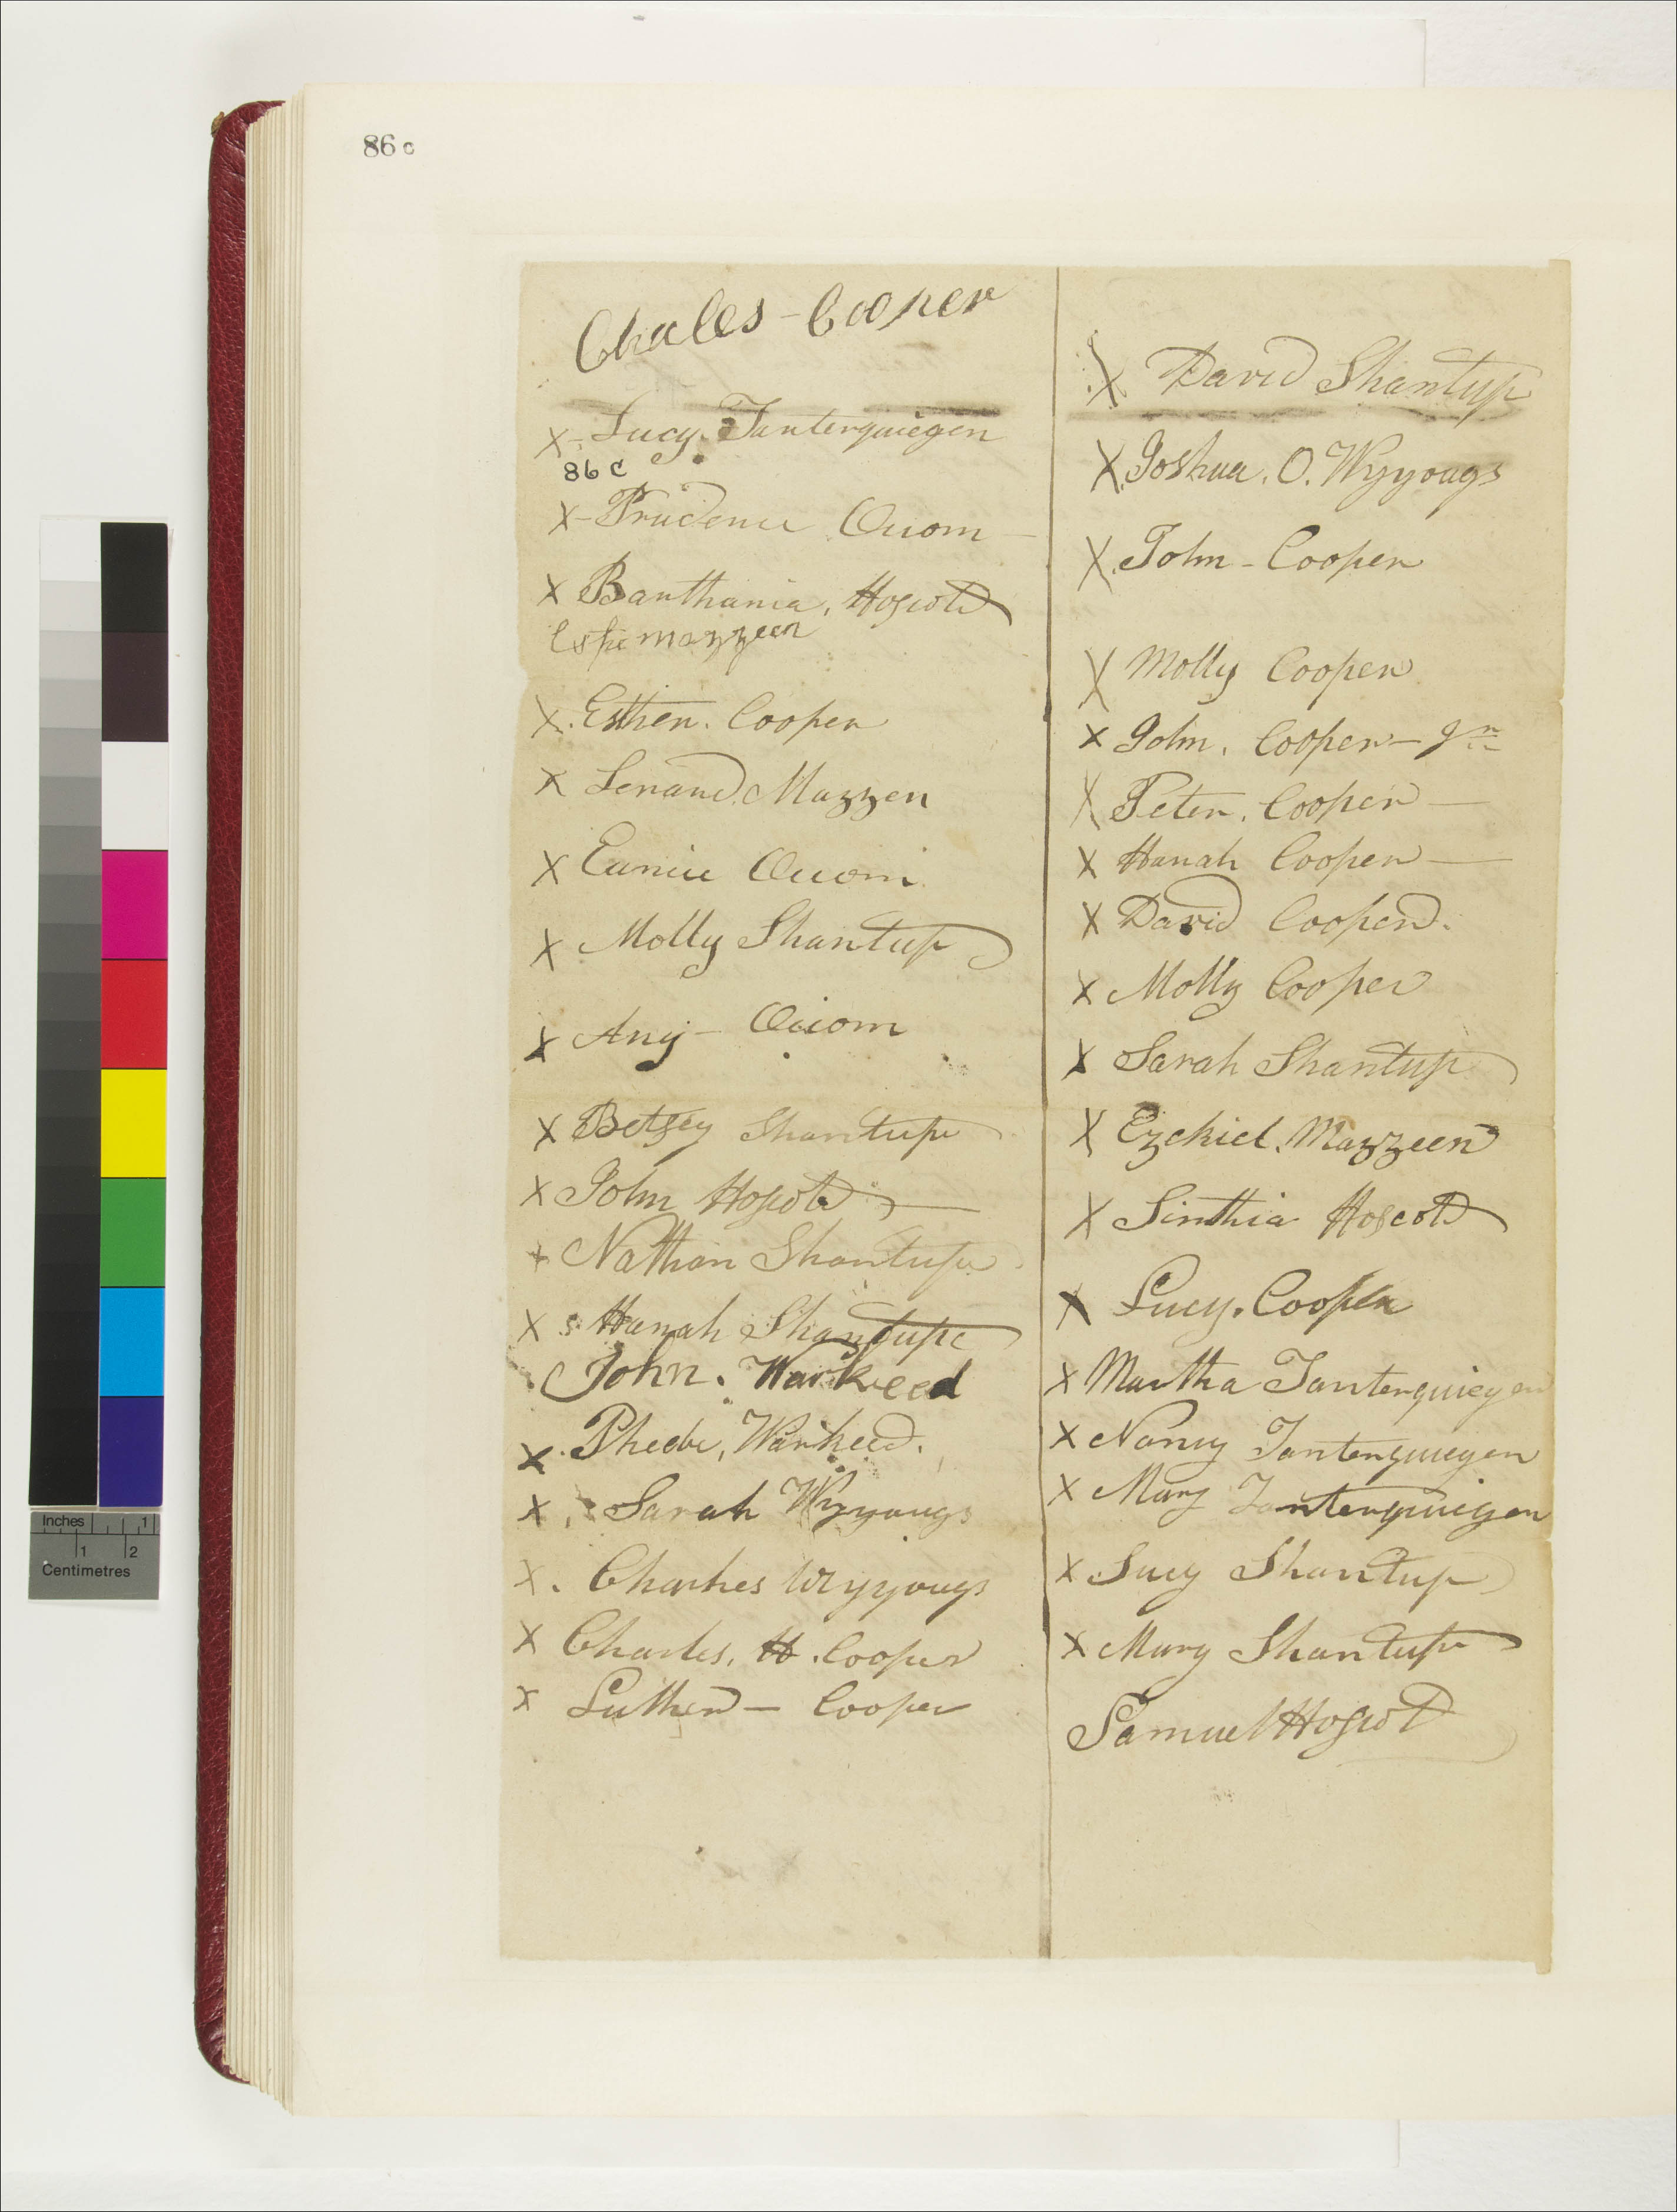 86 c
Chales - Cooper
X - Lucy. Tanterquiegen
86 C
X - Prudence Occom
X Banthania, Hoscott
Mazzeen
X. Esther. Cooper
X Lenard. Mazzen
X Eunice Occom
X Molly Shantup
X Any - Occom
X Betsey Shantup
X John Hoscott
X Nathan Shantup
X Hanah Shantupe
John. Warkeed
X. Phebe, Warkeed.
X, Sarah Wyyougs
X. Charles Wyyougs
X Charles. H. Cooper
X Luther - Cooper
X David Shantup
X. Joshua. O. Wyyougs
X. John - Cooper
X Molly Cooper
X John. Cooper - Jr
X Peter. Cooper
X Hanah Cooper
X David Cooper.
X Molly Cooper
X Sarah Shantup
X Ezekiel. Mazzeen
X Sinthia Hoscott
X Lucy. Cooper
X Martha Tanterquiegen
X Nancy Tanterquiegen
X Mary Tanterquiegen
X Lucy Shantup
X Mary Shantup
Samuel Hoscott
Inches 1
1 2
Centimetres